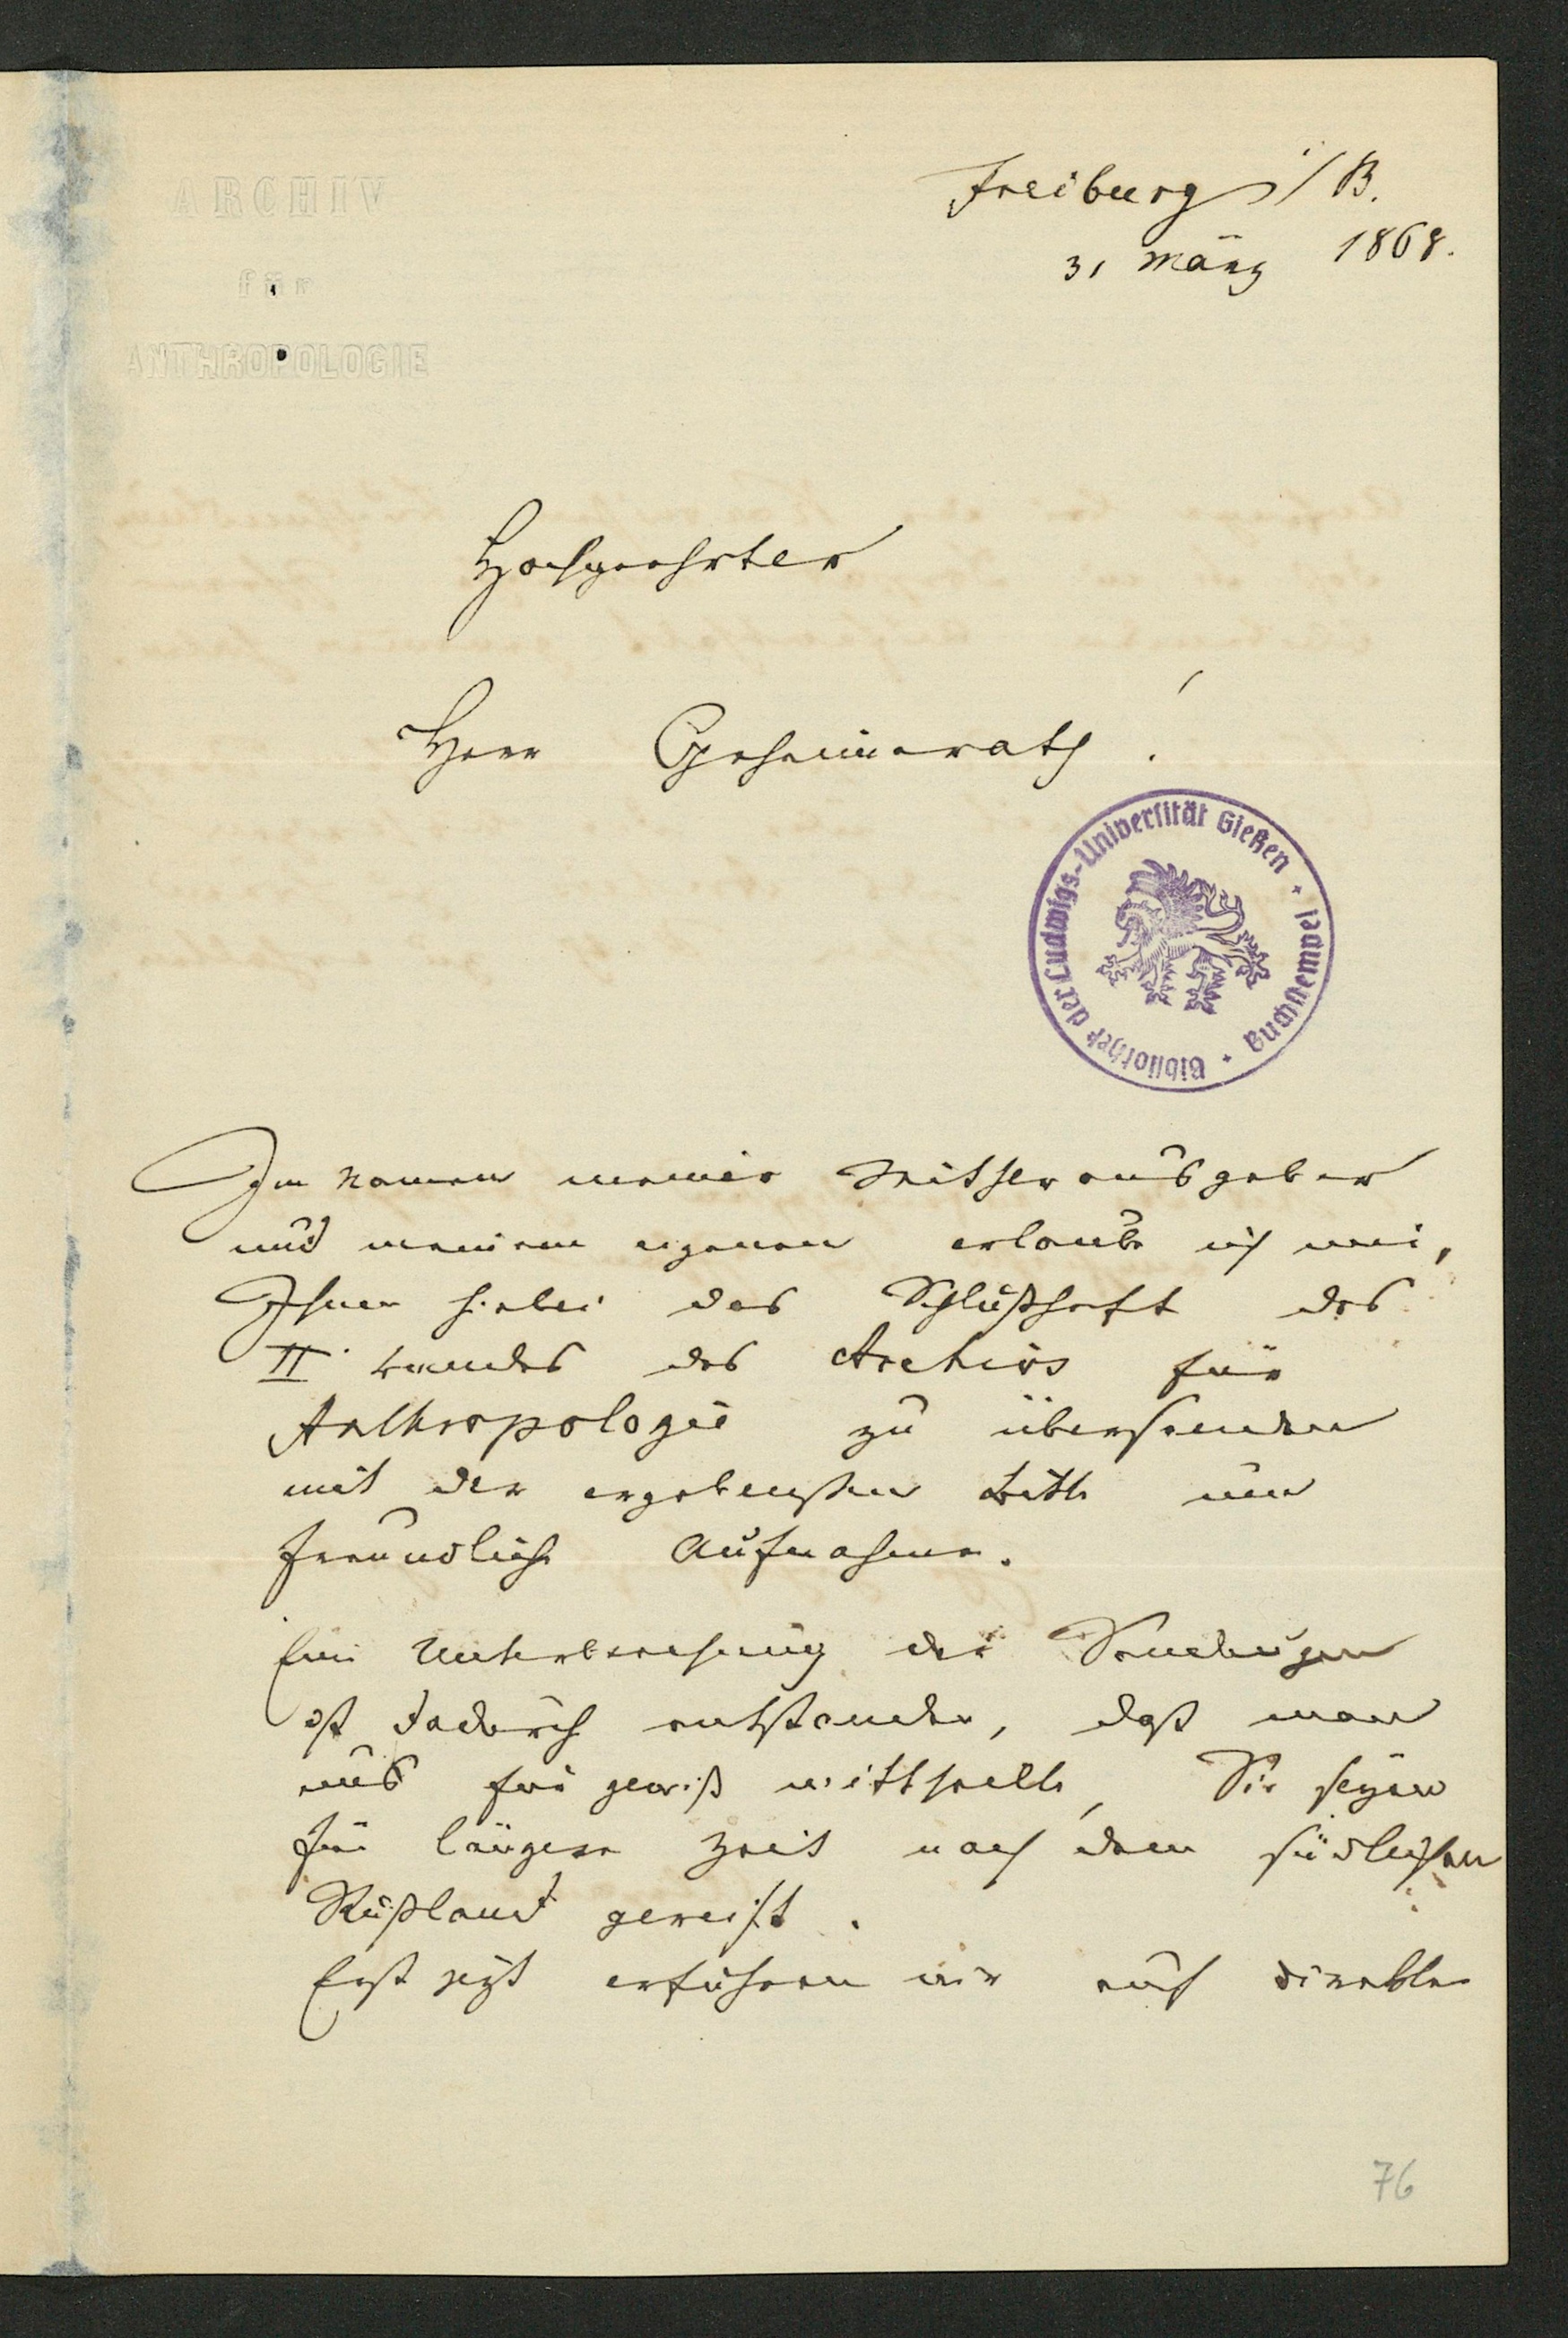 ARCHIV
für
ANTHROPOLOGIE
Freiburg i/B.
31 März 1868.
Hochgeehrter
Herr Geheimerath!
Bibliothek der Ludwigs-Universität Gießen + Buchstempel +
Im Namen meiner Mitherausgeber
und meinem eigenen erlaube ich mir,
Ihnen hiebei das Schlußheft des
II. Bandes des Archivs für
Anthropologie zu übersenden
mit der ergebensten Bitte um
freundliche Aufnahme.
Eine Unterbrechung der Sendungen
ist dadurch entstanden, daß man
uns für gewiß mittheilte, Sie seyen
für längere Zeit nach dem südlichen
Rußland gereist.
Erst jezt erfuhren wir auf direkte
76